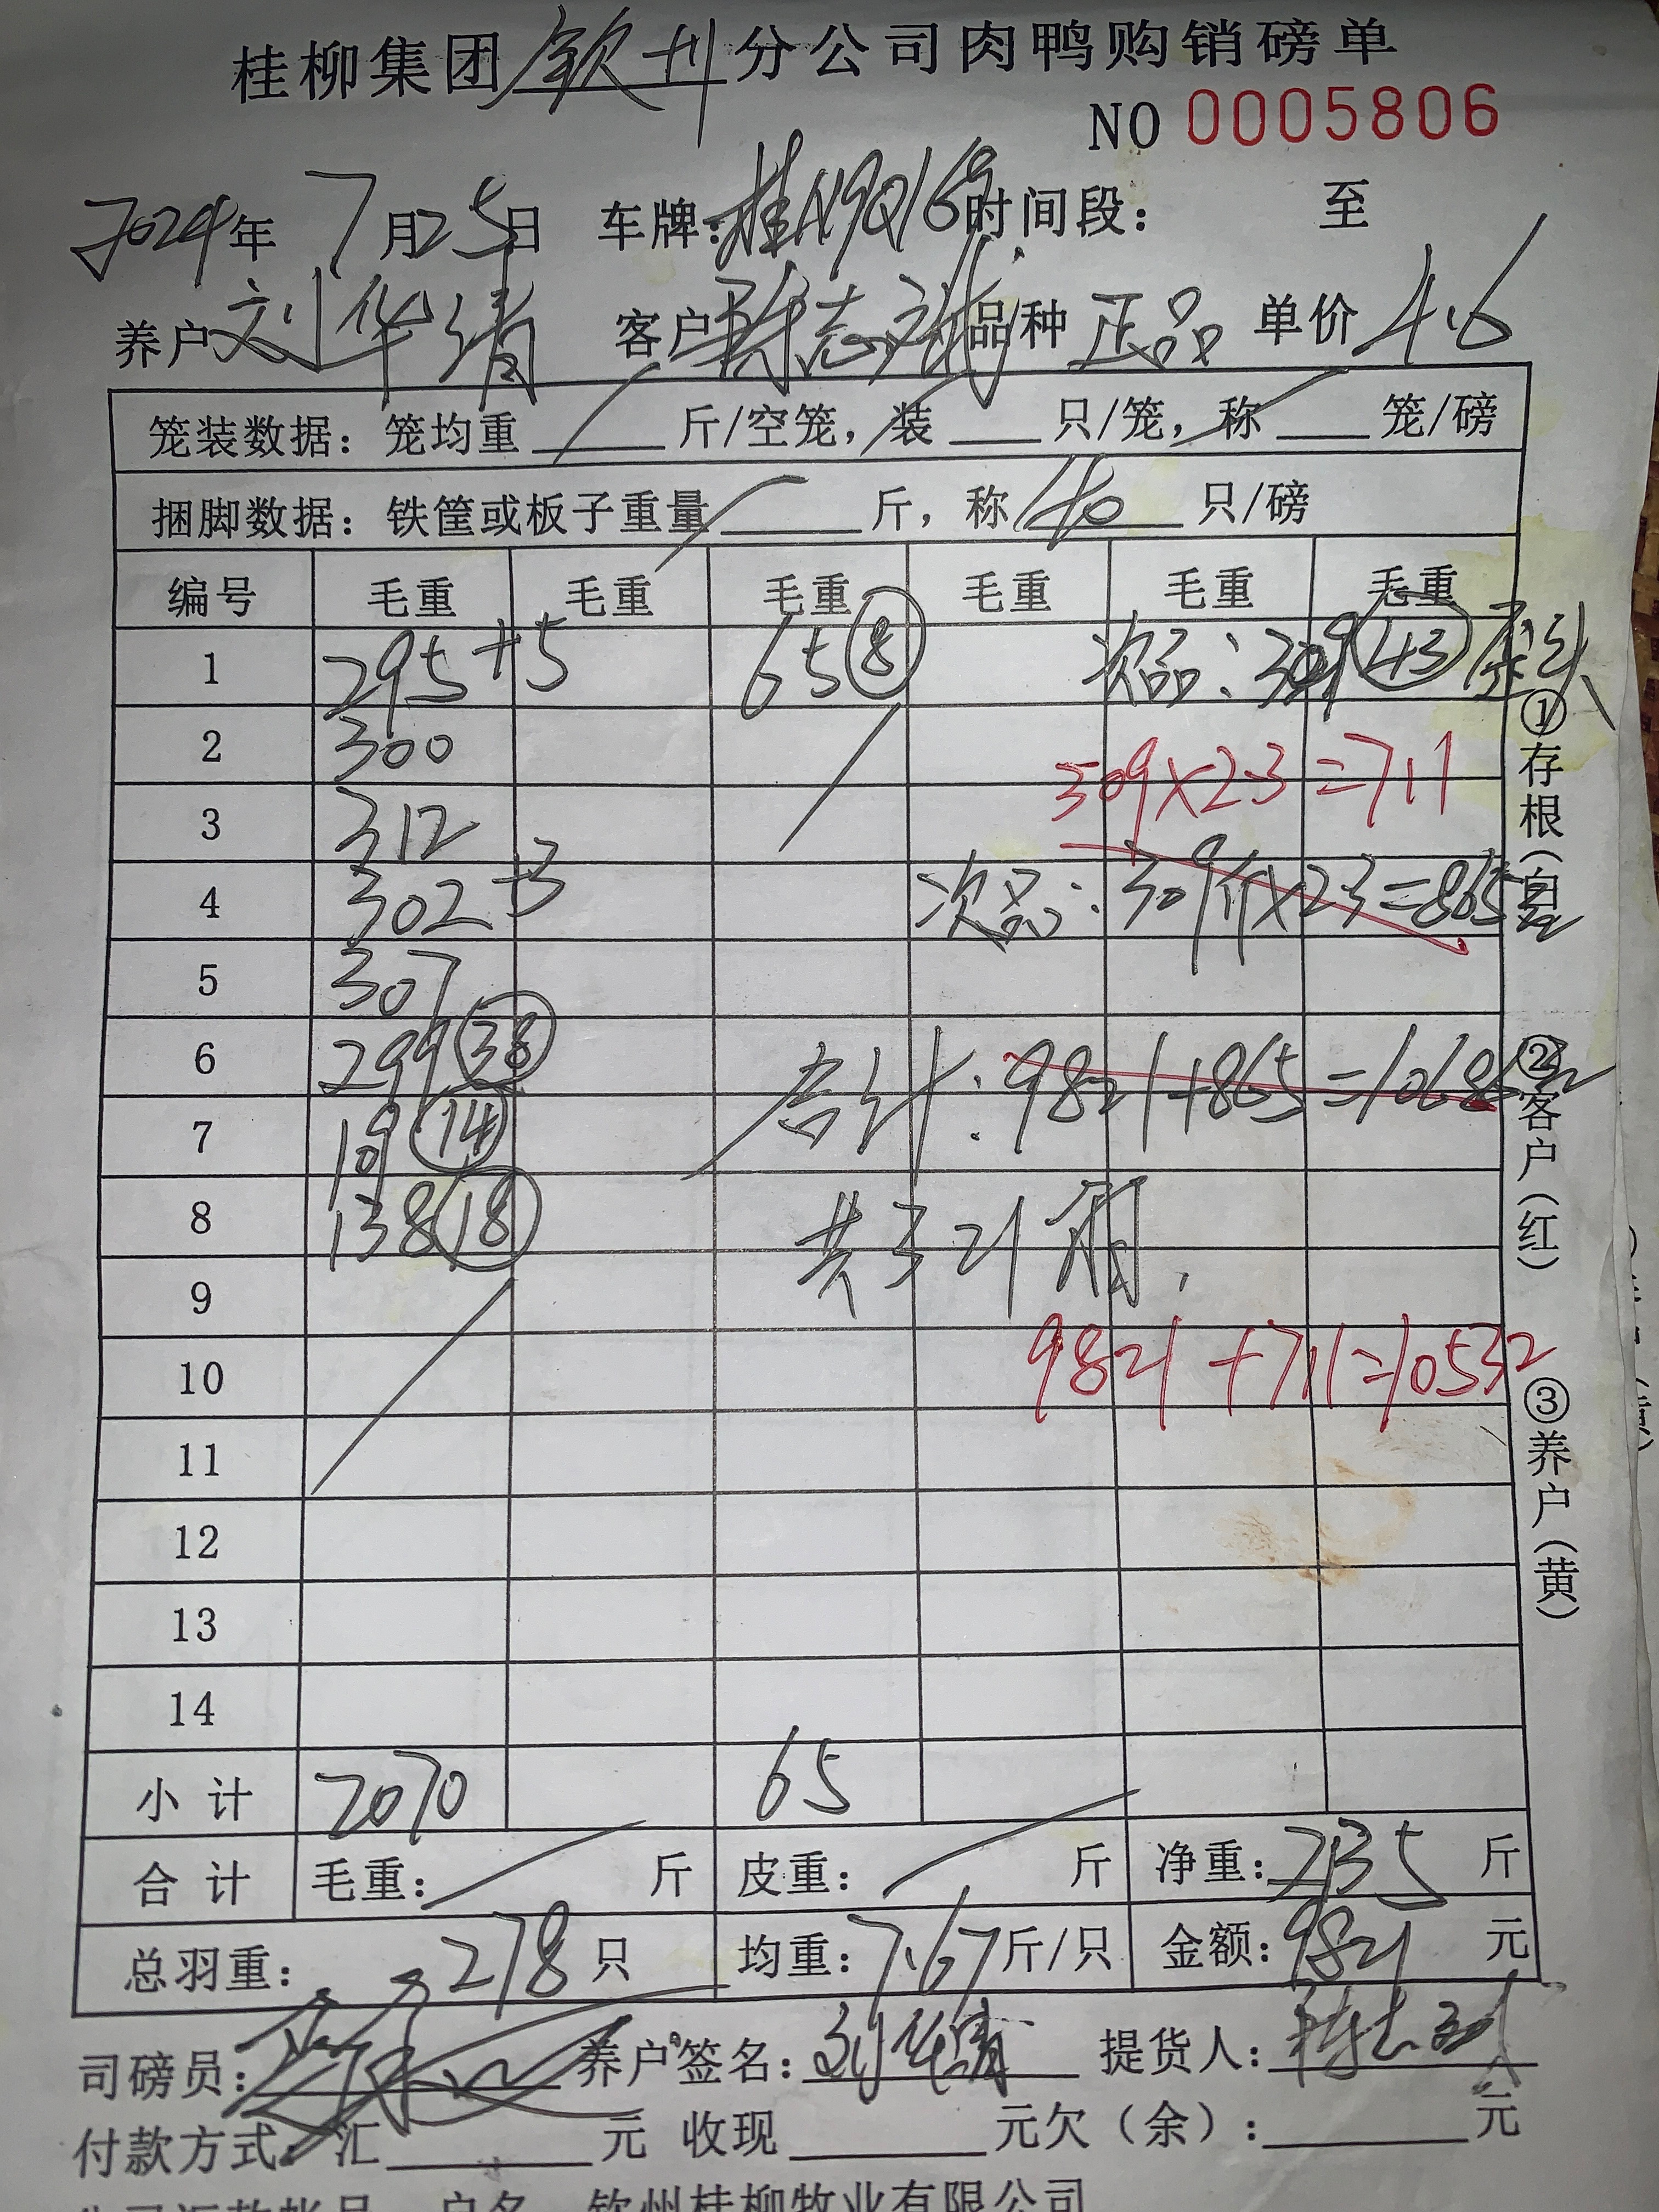 桂柳集团钦州分公司肉鸭购销磅单
NO 0005806
2024年 7月25日 车牌:桂N9Q16 时间段: 至
养户 刘华清 客户 陈志 品种 正品 单价 4.6
笼装数据: 笼均重 斤/空笼, 装 只/笼, 称 笼/磅
捆脚数据: 铁筐或板子重量 斤, 称 40 只/磅
编号 毛重 毛重 毛重 毛重 毛重 毛重
1 295 +5 65 ⑧ 次品: 309 ㊸
2 300
309×2.3=711
3 312
4 302 +3 次品: 309斤×2.3=865
5 307
6 299 ㊳ 合计: 9821+865=10686
7 109 ⑭
8 138 ⑱ 共 21
9
10 9821+711=10532
11
12
13
14
小计 2070 65
合计 毛重: 斤 皮重: 斤 净重: 2135 斤
总羽重: 278 只 均重: 7.67 斤/只 金额: 9821 元
司磅员: 养户签名: 刘华清 提货人:
付款方式: 汇 元 收现 元欠(余): 元
户名 钦州桂柳牧业有限公司
①存根(白)
②客户(红)
③养户(黄)